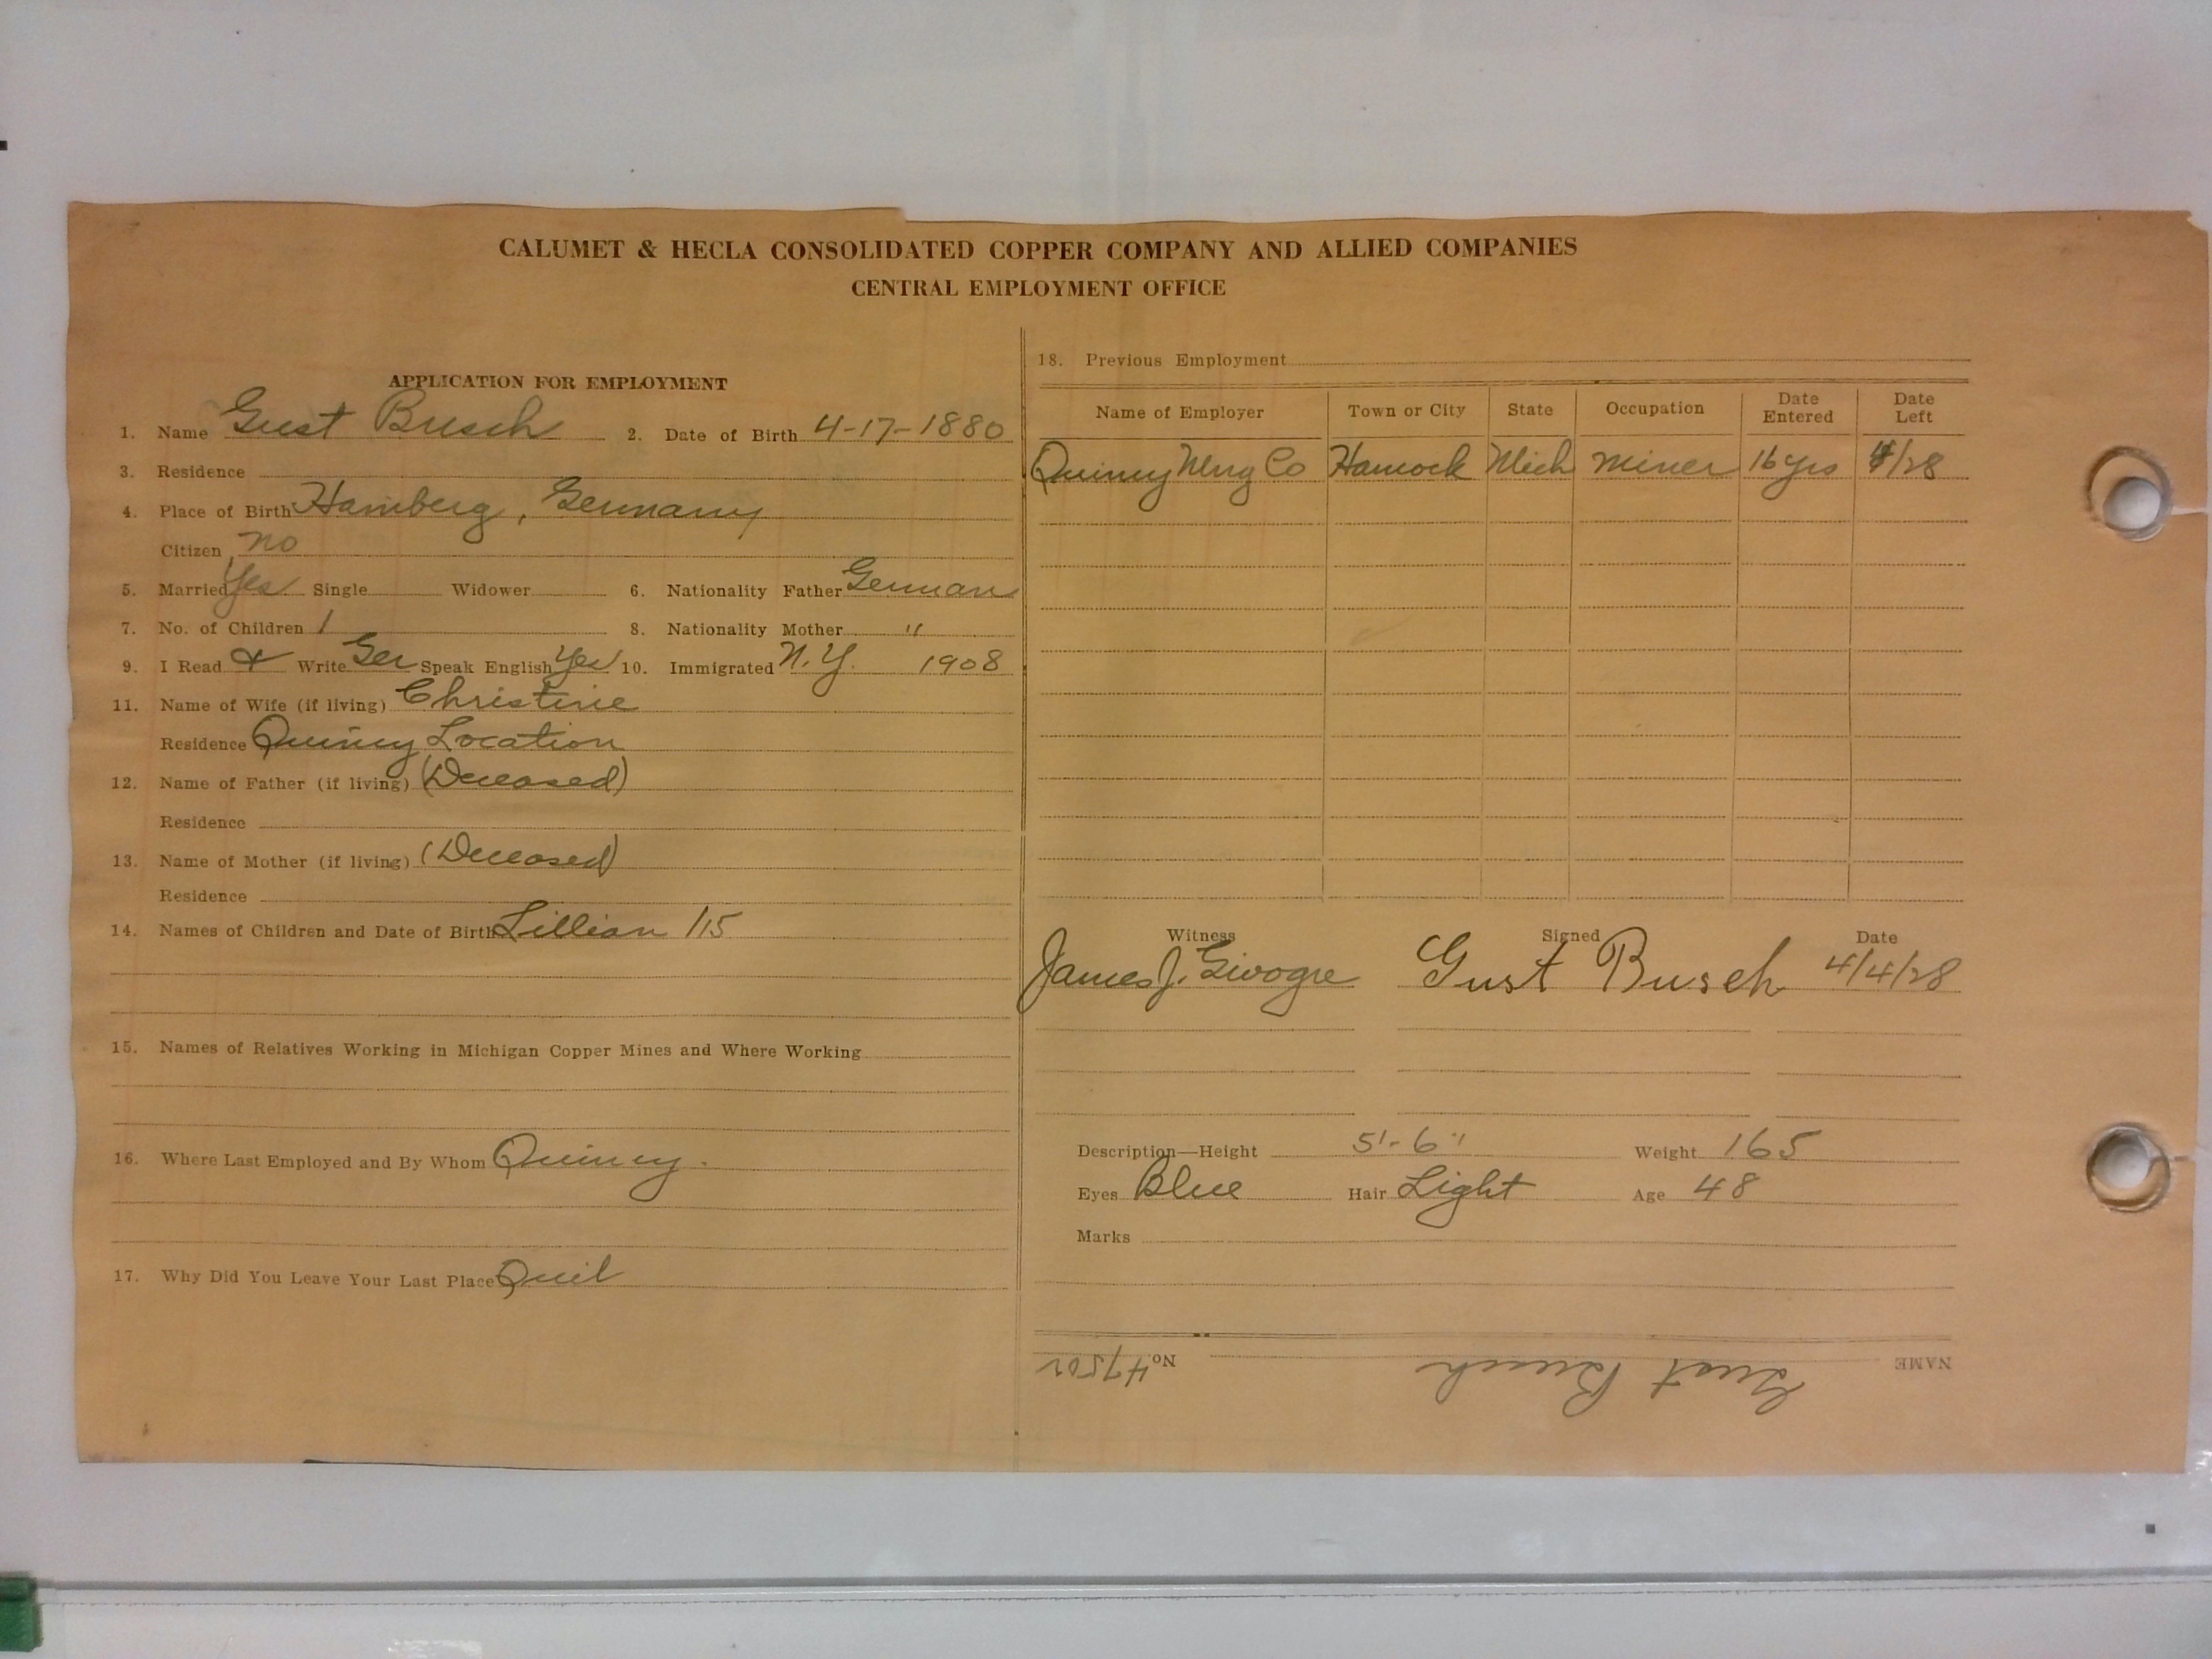 CALUMET & HECLA CONSOLIDATED COPPER COMPANY AND ALLIED COMPANIES
CENTRAL EMPLOYMENT OFFICE
APPLICATION FOR EMPLOYMENT
1. Name Gust Busch 2. Date of Birth 4-17-1880
3. Residence
4. Place of Birth Hamberg, Germany
Citizen no
5. Married Yes Single Widower 6. Nationality Father German
7. No. of Children 1 8. Nationality Mother "
9. I Read & Write Ger Speak English Yes 10. Immigrated N.Y. 1908
11. Name of Wife (if living) Christine
Residence Quincy Location
12. Name of Father (if living) (Deceased)
Residence
13. Name of Mother (if living) (Deceased)
Residence
14. Names of Children and Date of Birth Lillian 15
15. Names of Relatives Working in Michigan Copper Mines and Where Working
16. Where Last Employed and By Whom Quincy.
17. Why Did You Leave Your Last Place Quit
18. Previous Employment
Name of Employer Town or City State Occupation Date Entered Date Left
Quincy Mng Co Hancock Mich Miner 16 yrs 4/28
Witness Signed Date
James J. Gust Busch 4/4/28
Description—Height 5'-6" Weight 165
Eyes Blue Hair Light Age 48
Marks
NAME Gust Busch No. 47502